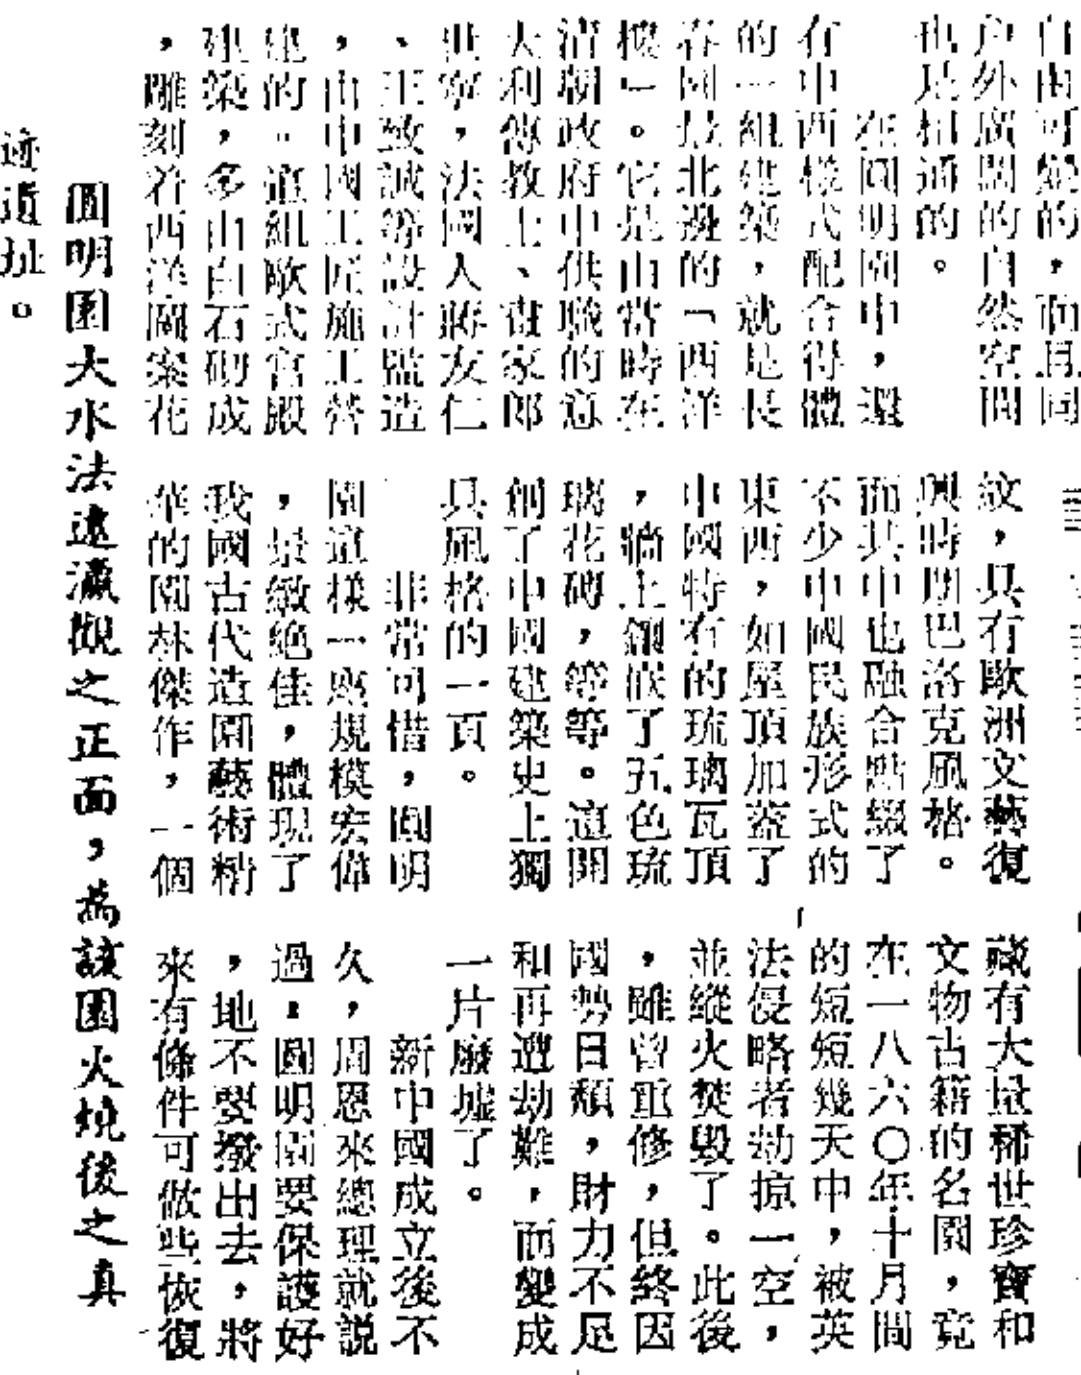 自由可變的，而且同
户外廣闊的自然空間
也是相通的。
在圓明園中，還
有中西樣式配合得體
的一組建築，就是長
春園最北邊的「西洋
樓」。它是由當時在
清朝政府中供職的意
大利傳教士、畫家郎
世寧，法國人蔣友仁
、王致誠等設計監造
，由中國工匠施工營
建的。這組歐式宮殿
建築，多由白石砌成
，雕刻着西洋圖案花
紋，具有歐洲文藝復
興時期巴洛克風格。
而其中也融合點綴了
不少中國民族形式的
東西，如屋頂加蓋了
中國特有的琉璃瓦頂
，牆上鑲嵌了五色琉
璃花磚，等等。這開
創了中國建築史上獨
具風格的一頁。
非常可惜，圓明
園這樣一座規模宏偉
，景緻絕佳，體現了
我國古代造園藝術精
華的園林傑作，一個
藏有大量稀世珍寶和
文物古籍的名園，竟
在一八六〇年十月間
的短短幾天中，被英
法侵略者劫掠一空，
並縱火焚毀了。此後
，雖曾重修，但終因
國勢日頹，財力不足
和再遭劫難，而變成
一片廢墟了。
新中國成立後不
久，周恩來總理就説
過，圓明園要保護好
，地不要撥出去，將
來有條件可做些恢復
圓明園大水法遠瀛觀之正面，為該園火燒後之真
迹遺址。